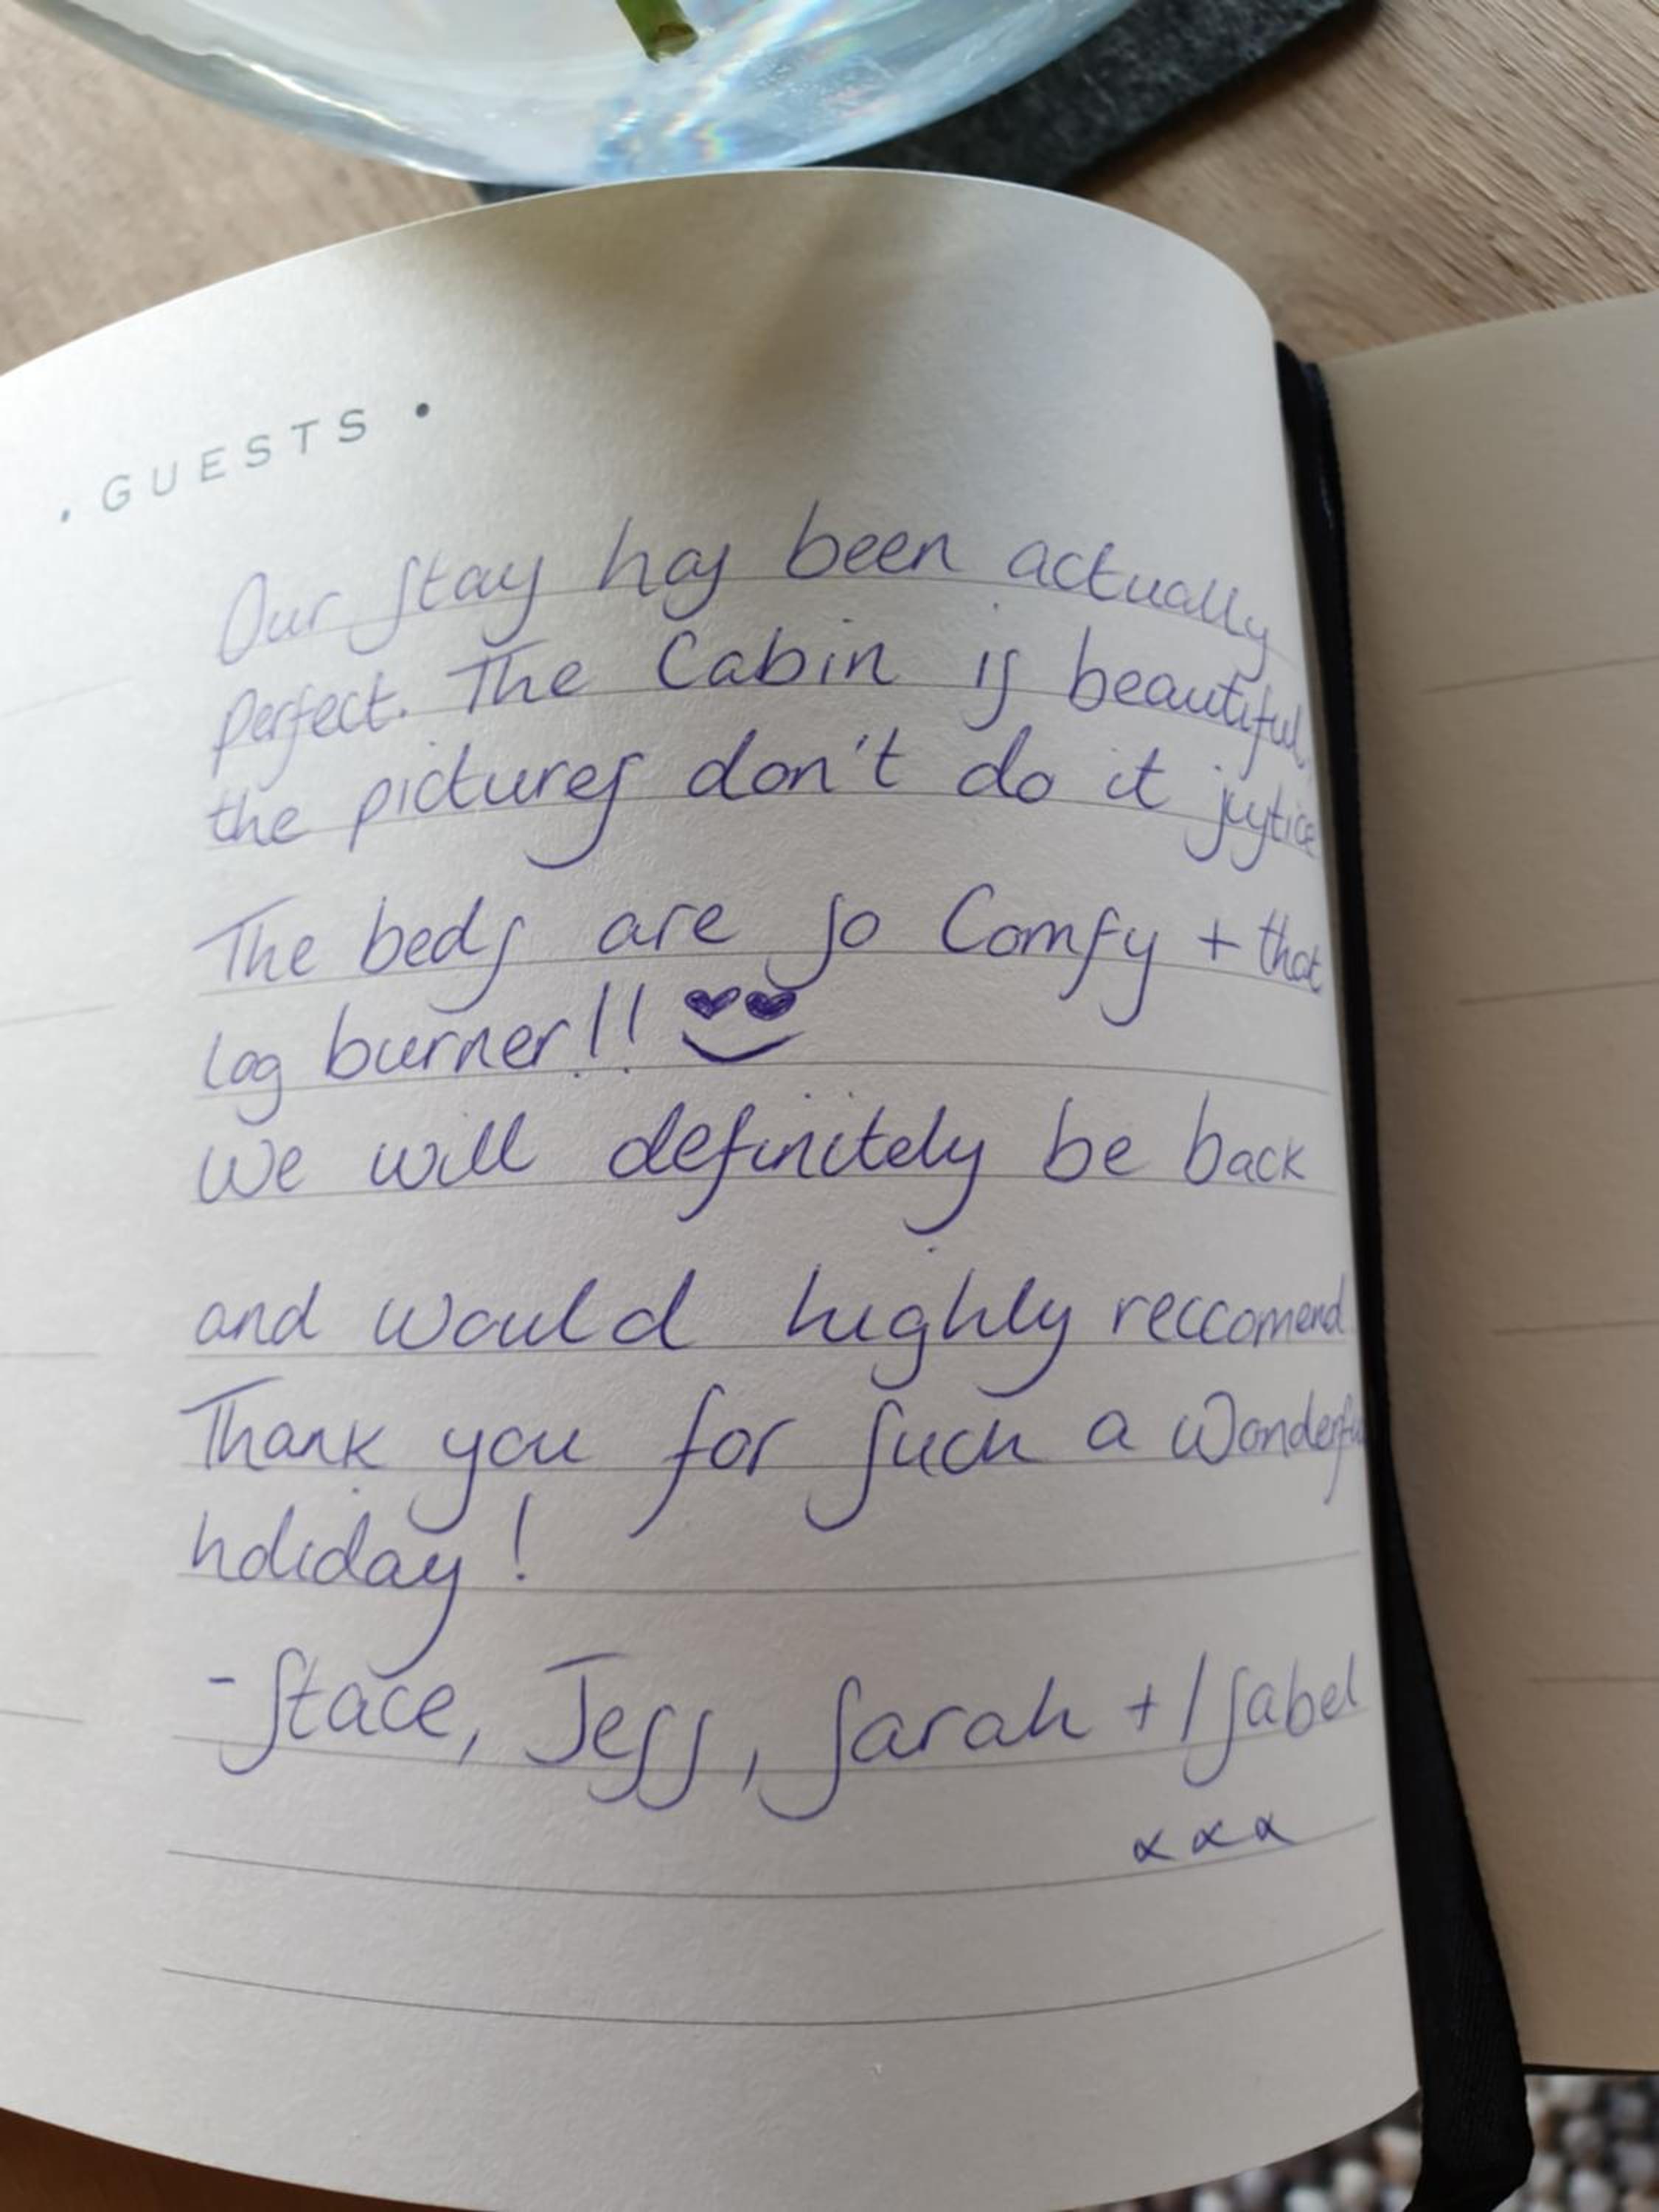 • GUESTS •
Our stay has been actually
perfect. The Cabin is beautiful,
the pictures don't do it justice
The beds are so Comfy + that
log burner!!
We will definitely be back
and would highly reccomend
Thank you for such a Wonderful
holiday!
- Stace, Jess, Sarah + Isabel
xxx